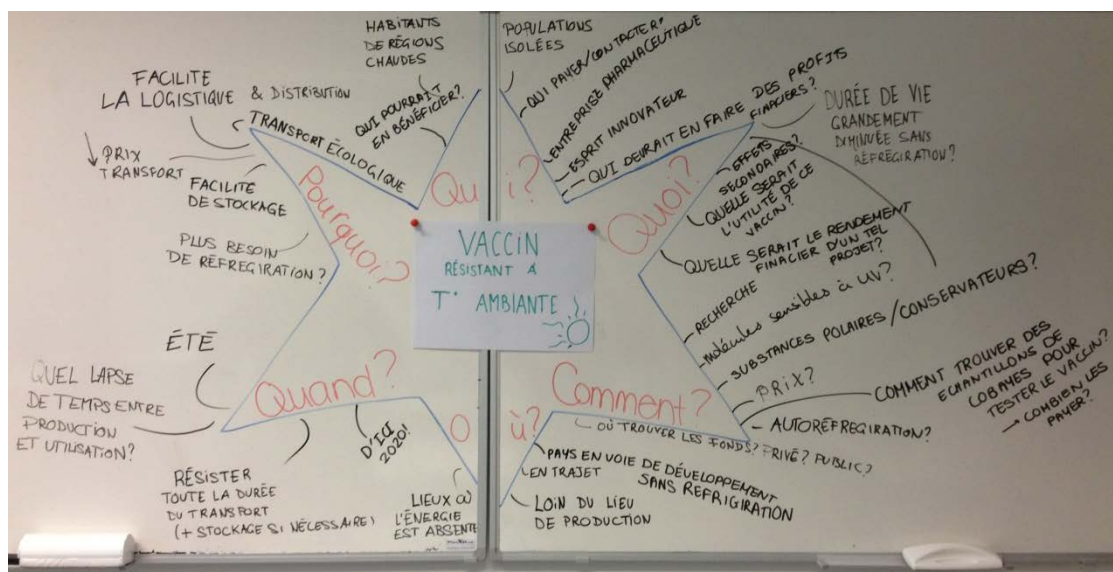 VACCIN
RÉSISTANT À
T° AMBIANTE
Pourquoi?
FACILITE
LA LOGISTIQUE & DISTRIBUTION
TRANSPORT ÉCOLOGIQUE
↓ PRIX
TRANSPORT
FACILITE
DE STOCKAGE
PLUS BESOIN
DE RÉFREGIRATION?
Qui?
HABITANTS
DE RÉGIONS
CHAUDES
QUI POURRAIT
EN BÉNÉFICIER?
POPULATIONS
ISOLÉES
QUI PAYER/CONTACTER?
ENTREPRISE PHARMACEUTIQUE
ESPRIT INNOVATEUR
QUI DEVRAIT EN FAIRE DES PROFITS
FINACIERS?
Quoi?
DURÉE DE VIE
GRANDEMENT
DIMINUÉE SANS
RÉFRÉGIRATION?
EFFETS
SECONDAIRES?
QUELLE SERAIT
L'UTILITÉ DE CE
VACCIN?
QUELLE SERAIT LE RENDEMENT
FINACIER D'UN TEL
PROJET?
Comment?
RECHERCHE
molécules sensibles à UV?
SUBSTANCES POLAIRES/CONSERVATEURS?
PRIX?
COMMENT TROUVER DES
ECHANTILLONS DE
COBAYES POUR
TESTER LE VACCIN?
→ COMBIEN LES
PAYER?
AUTOREFREGIRATION?
OÙ TROUVER LES FONDS? PRIVÉ? PUBLIC?
Où?
PAYS EN VOIE DE DÉVELOPPEMENT
SANS REFRIGIRATION
EN TRAJET
LOIN DU LIEU
DE PRODUCTION
LIEUX OÙ
L'ÉNERGIE
EST ABSENTE
Quand?
ÉTÉ
QUEL LAPSE
DE TEMPS ENTRE
PRODUCTION
ET UTILISATION?
RÉSISTER
TOUTE LA DURÉE
DU TRANSPORT
(+ STOCKAGE SI NÉCESSAIRE)
D'ICI
2020!